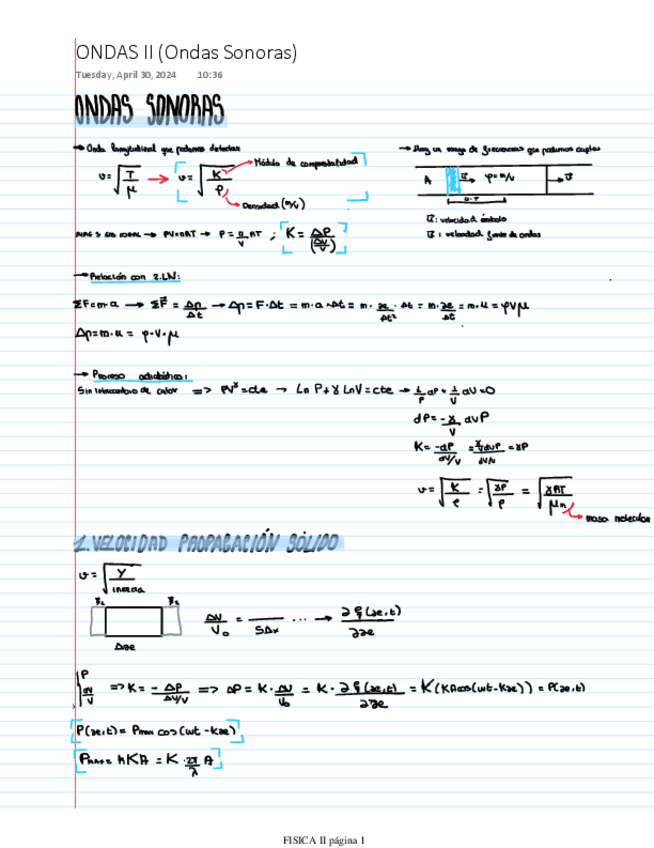 ONDAS II (Ondas Sonoras)
Tuesday, April 30, 2024 10:36
ONDAS SONORAS
→ Onda longitudinal que podemos detectar
→ Hay un rango de frecuencias que podemos captar
v = √(T/μ) → v = √(K/ρ)
Módulo de compresibilidad
Densidad (m/v)
A
ρ = m/v
v: velocidad frente de ondas
→ PV=nRT → P = n/V RT ; K = ΔP/(ΔV/V)
→ Relación con 2.LN:
ΣF=m·a → ΣF = Δp/Δt → Δp = F·Δt = m·a·Δt = m· æ/Δt² · Δt = m· æ/Δt = m·u = ρVμ
Δp = m·u = ρ·V·μ
→ Proceso adiabático:
Sin intercambio de calor => PV^γ = cte → Ln P + γ Ln V = cte → 1/P dP + γ/V dV = 0
dP = -γ/V dV P
K = -dP/(dV/V) = (γ/V dV P)/(dV/V) = γP
v = √(K/ρ) = √(γP/ρ) = √(γRT/μn)
masa molecular
1. VELOCIDAD PROPAGACIÓN SÓLIDO
v = √(Y/inercia)
F₁ F₂
Δæ
ΔV/V₀ = /SΔx ... → ∂ξ(æ,t)/∂æ
P
=> K = - ΔP/(ΔV/V) => ΔP = K· ΔV/V₀ = K· ∂ξ(æ,t)/∂æ = K(KAcos(wt-Kæ)) = P(æ,t)
P(æ,t) = Pmax cos(wt - Kæ)
Pmax = KKA = K · 2π/λ A
FISICA II página 1